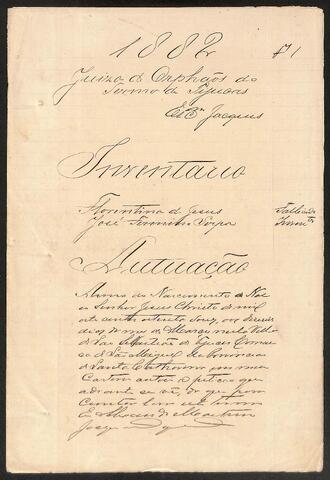 1882 f 1
Juizo d' Orphãos do
Termo de Tijucas
Jacques
Inventario
Florentina de Jesus Fallecida
José Fermino Serpa Invent
Autuação
Anno do Nascimento de Nos
so Senhor Jesus Christo de mil
oito centos oitenta e dous, aos
dias do mes de Março nesta Villa
de São Sebastião de Tijucas Comar
ca de São Miguel da Provincia
de Santa Catharina em meu
Cartorio autuo a petição que
adiante se vê; do que para
constar faço este termo